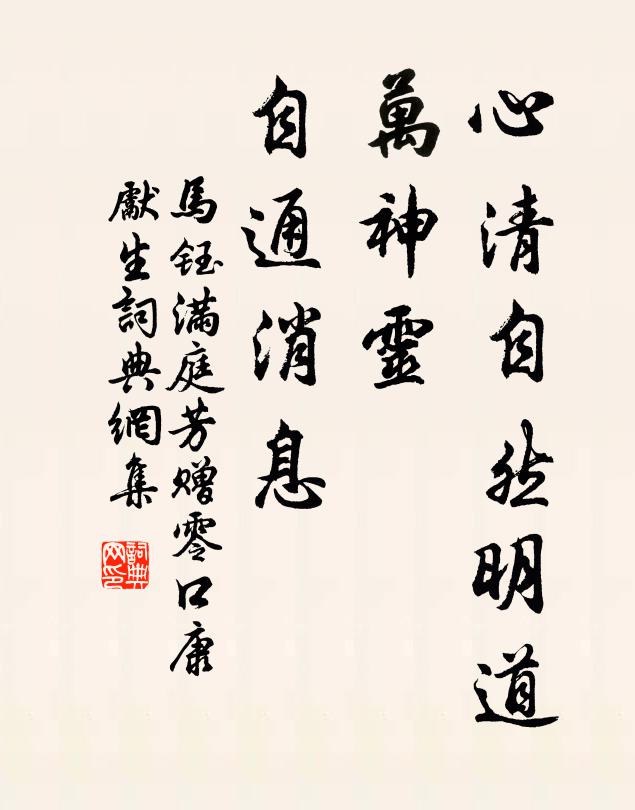 心清自然明道
萬神靈
自通消息
馬鈺滿庭芳赠零口康
獻生詞典網集
詞典
网印